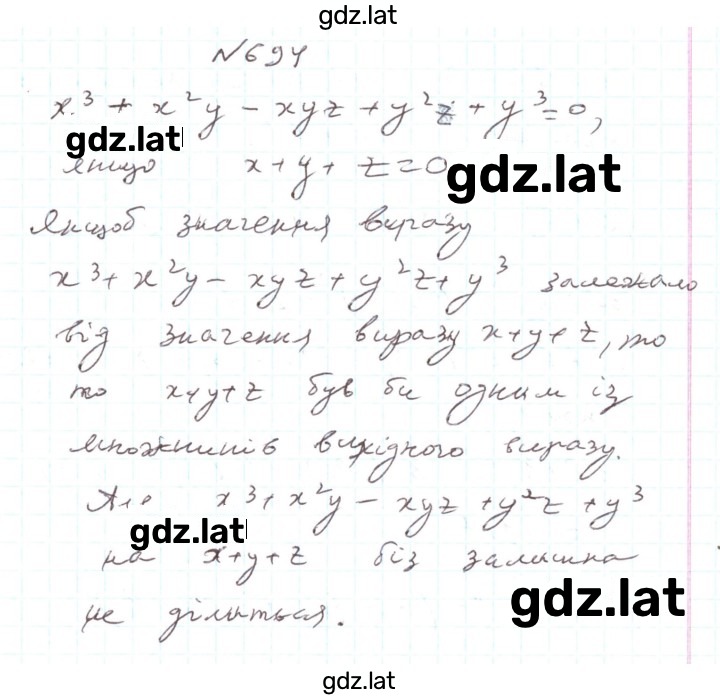 gdz.lat
№694
x³ + x²y - xyz + y²z + y³ = 0,
gdz.lat
якщо x + y + z = 0
gdz.lat
Якщоб значення виразу
x³ + x²y - xyz + y²z + y³ залежало
від значення виразу x+y+z, то
то x+y+z був би одним із
множників вихідного виразу.
Але x³ + x²y - xyz + y²z + y³
gdz.lat
на x+y+z без залишка
gdz.lat
не ділиться.
gdz.lat